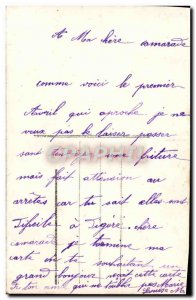 A Ma chère camarade
comme voici le premier
Avril qui aproche je ne
veux pas le laisser passer
sans une friture
mais fait attention au
arrêtes car tu sait elles sont
chère
camarade je termine ma
carte en te souhaitant un
grand bonjour cette carte
ton amie qui ne t'oublie pas Marie